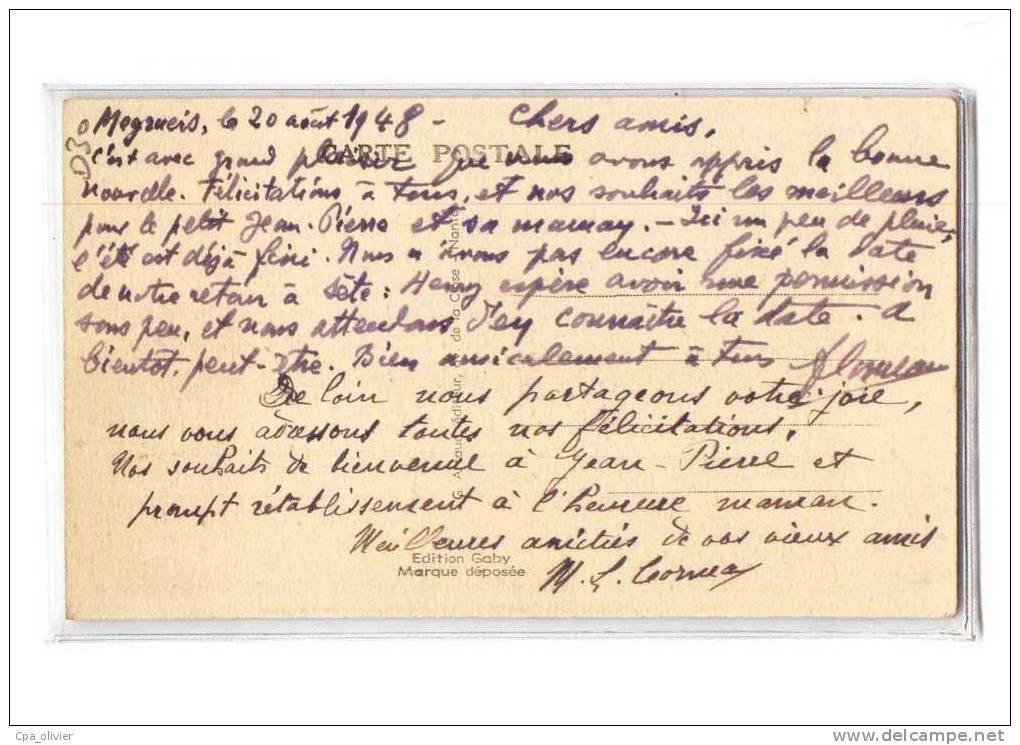 D30
le 20 août 1948 - Chers amis,
CARTE POSTALE
c'est avec grand plaisir que nous avons appris la bonne
nouvelle. Félicitations, à tous, et nos souhaits les meilleurs
pour le petit Jean-Pierre et sa maman. - Ici un peu de pluie,
l'été est déjà fini. Nous n'avons pas encore fixé la date
de notre retour à Sète : Henry espère avoir une permission
sous peu, et nous attendons d'en connaître la date. A
bientôt, peut-être. Bien amicalement à tous
De loin nous partageons votre joie,
nous vous adressons toutes nos félicitations.
Nos souhaits de bienvenue à Jean-Pierre et
prompt rétablissement à l'heureuse maman.
Meilleures amitiés de vos vieux amis
Edition Gaby
Marque déposée
M. L.
Cpa_olivier
www.delcampe.net